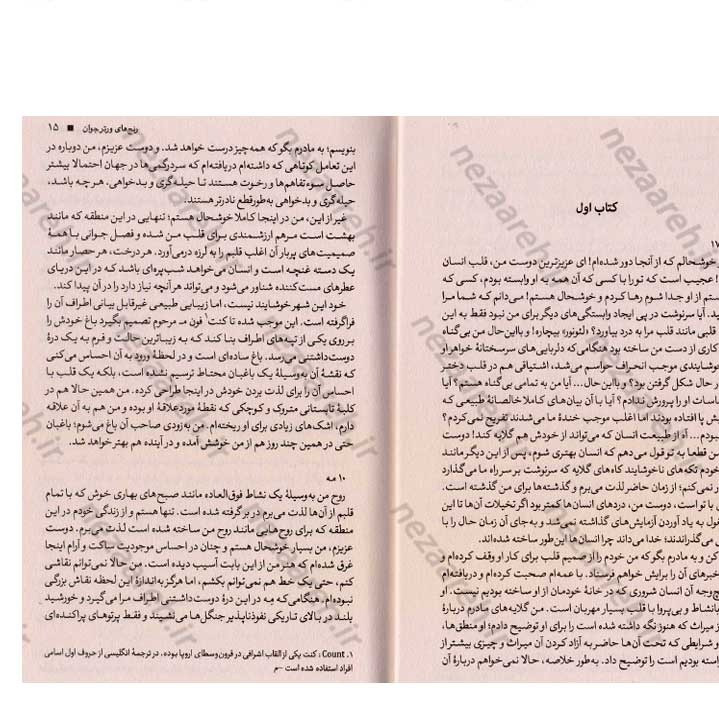 کتاب اول
خوشحالم که از آنجا دور شده‌ام! ای عزیزترین دوست من، قلب انسان
! عجیب است که تو را با کسی که آن همه به او وابسته بودم، کسی که
ستم از او جدا شوم رها کردم و خوشحال هستم! می‌دانم که شما مرا
ید. آیا سرنوشت در پی ایجاد وابستگی‌های دیگر برای من نبود فقط به این
قلبی مانند قلب مرا به درد بیاورد؟ «لئونور» بیچاره! و بااین‌حال من بی‌گناه
کاری از دست من ساخته بود هنگامی‌که دلربایی‌های سرسختانهٔ خواهر او
خوشایندی موجب انحراف حواسم می‌شد، اشتیاقی هم در قلب دختر
ر حال شکل گرفتن بود؟ و بااین‌حال... آیا من به تمامی بی‌گناه هستم؟ آیا
ساسات او را پرورش ندادم؟ آیا با آن بیان‌های کاملا خالصانهٔ طبیعی که
یش پا افتاده بودند اما اغلب موجب خندهٔ ما می‌شدند تفریح نمی‌کردم؟
نبودم... آه از طبیعت انسان که می‌تواند از خودش هم گلایه کند! دوست
من قطعا به تو قول می‌دهم که انسان بهتری شوم، پس از این دیگر مانند
خودم تکه‌های ناخوشایند کاه‌های گلایه که سرنوشت بر سر راه ما می‌گذارد
ر نمی‌کنم؛ از زمان حاضر لذت می‌برم و گذشته‌ها برای من گذشته است.
با تو است، دوست من، دردهای انسان‌ها کمتر بود اگر تخیلات آن‌ها تا این
ول به یاد آوردن آزمایش‌های گذشته نمی‌شد و به‌جای آن زمان حال را با
ی می‌گذراندند؛ خدا می‌داند چرا انسان‌ها این‌طور ساخته شده‌اند.
کن و به مادرم بگو که من خودم را از صمیم قلب برای کار او وقف کرده‌ام و
خبرهای آن را برایش خواهم فرستاد. با عمه‌ام صحبت کرده‌ام و دریافته‌ام
چ‌وجه آن انسان شروری که در خانهٔ خودمان از او ساخته بودیم نیست. او
بانشاط و بی‌پروا با قلب بسیار مهربان است. من گلایه‌های مادرم دربارهٔ
ز میراث که هنوز نگه داشته شده است را برای او توضیح دادم؛ او منطق‌ها،
و شرایطی که تحت آن‌ها حاضر به آزاد کردن آن میراث و چیزی بیشتر از
استه بودیم است را توضیح داد. به‌طور خلاصه، حالا نمی‌خواهم دربارهٔ آن
رنج‌های ورتر جوان ■ ۱۵
بنویسم؛ به مادرم بگو که همه چیز درست خواهد شد. و دوست عزیزم، من دوباره در
این تعامل کوتاهی که داشته‌ام دریافته‌ام که سردرگمی‌ها در جهان احتمالا بیشتر
حاصل سوءتفاهم‌ها و رخوت هستند تا حیله‌گری و بدخواهی. هرچه باشد،
حیله‌گری و بدخواهی به‌طورقطع نادرتر هستند.
غیر از این، من در اینجا کاملا خوشحال هستم؛ تنهایی در این منطقه که مانند
بهشت است مرهم ارزشمندی برای قلب من شده و فصل جوانی با همهٔ
صمیمیت‌های پربار آن اغلب قلبم را به لرزه درمی‌آورد. هر درخت، هر حصار مانند
یک دسته غنچه است و انسان می‌خواهد شب‌پره‌ای باشد که در این دریای
عطرهای مست‌کننده شناور می‌شود و می‌تواند هر آنچه نیاز دارد را در آن پیدا کند.
خود این شهر خوشایند نیست، اما زیبایی طبیعی غیرقابل بیانی اطراف آن را
فراگرفته است. این موجب شده تا کنت۱ فون م. مرحوم تصمیم بگیرد باغ خودش را
بر روی یکی از تپه‌های اطراف بنا کند که به زیباترین حالت و فرم به یک درهٔ
دوست‌داشتنی می‌رسد. باغ ساده‌ای است و در لحظهٔ ورود به آن احساس می‌کنی
که نقشهٔ آن به‌وسیلهٔ یک باغبان محتاط ترسیم نشده است، بلکه یک قلب با
احساس آن را برای لذت بردن خودش در اینجا طراحی کرده. من همین حالا هم در
کلبهٔ تابستانی متروک و کوچکی که نقطهٔ موردعلاقهٔ او بوده و من هم به آن علاقه
دارم، اشک‌های زیادی برای او ریخته‌ام. من به‌زودی صاحب آن باغ می‌شوم؛ باغبان
حتی در همین چند روز هم از من خوشش آمده و در آینده هم بهتر خواهد شد.
۱۰ مه
روح من به‌وسیلهٔ یک نشاط فوق‌العاده مانند صبح‌های بهاری خوش که با تمام
قلبم از آن‌ها لذت می‌برم در بر گرفته شده است. تنها هستم و از زندگی خودم در این
منطقه که برای روح‌هایی مانند روح من ساخته شده است لذت می‌برم. دوست
عزیزم، من بسیار خوشحال هستم و چنان در احساس موجودیت ساکت و آرام اینجا
غرق شده‌ام که هنر من از این بابت آسیب دیده است. من حالا نمی‌توانم نقاشی
کنم، حتی یک خط هم نمی‌توانم بکشم، اما هرگز به‌اندازهٔ این لحظه نقاش بزرگی
نبوده‌ام. هنگامی‌که مه در این درهٔ دوست‌داشتنی اطراف مرا می‌گیرد و خورشید
بلند در بالای تاریکی نفوذناپذیر جنگل‌ها می‌نشیند و فقط پرتوهای پراکنده‌ای
۱. Count: کنت یکی از القاب اشرافی در قرون وسطای اروپا بوده. در ترجمهٔ انگلیسی از حروف اول اسامی
افراد استفاده شده است -م
nezaareh.ir